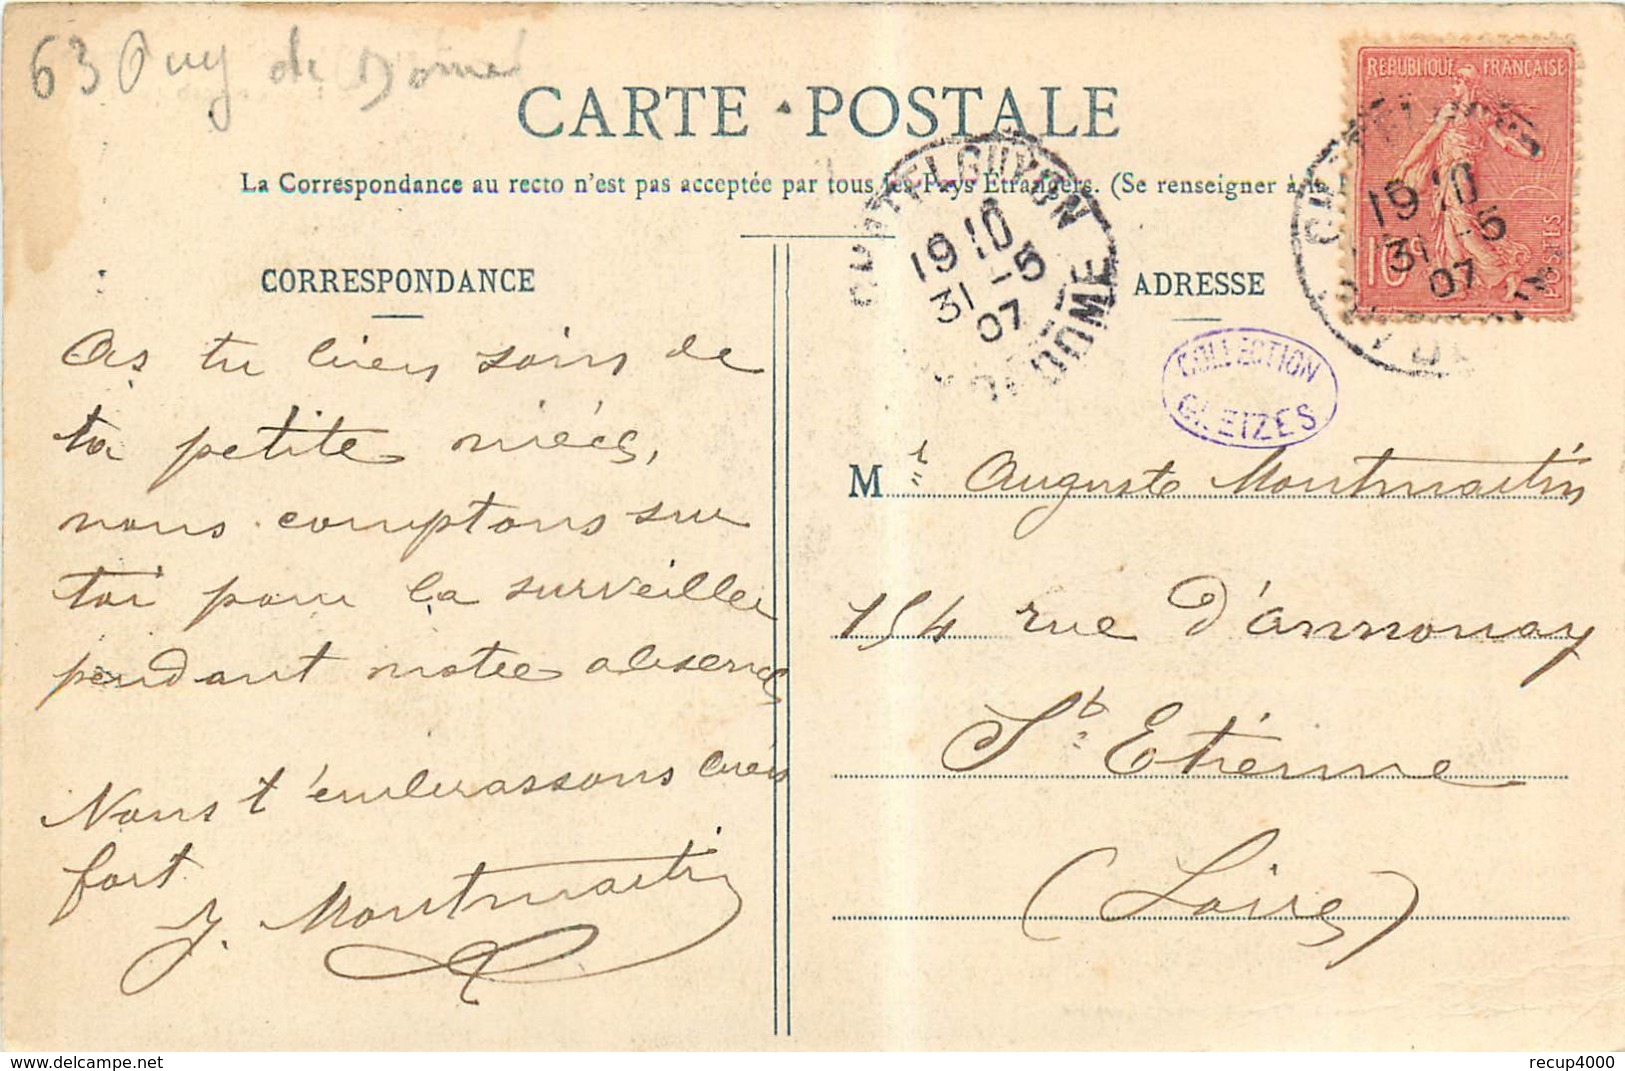 63 Puy de Dome
CARTE POSTALE
La Correspondance au recto n'est pas acceptée par tous les Pays Étrangers. (Se renseigner à la
CORRESPONDANCE
As tu bien soin de
ta petite nièce,
nous comptons sur
toi pour la surveiller
pendant notre absence
Nous t'embrassons bien
fort
J. Montmartin
CHATELGUYON
19 10
31 -5
07
DOME
ADRESSE
REPUBLIQUE FRANÇAISE
10
POSTES
19 10
31 -5
07
COLLECTION
GLEIZES
Mr Auguste Montmartin
154 rue d'annonay
St Etienne
(Loire)
recup4000